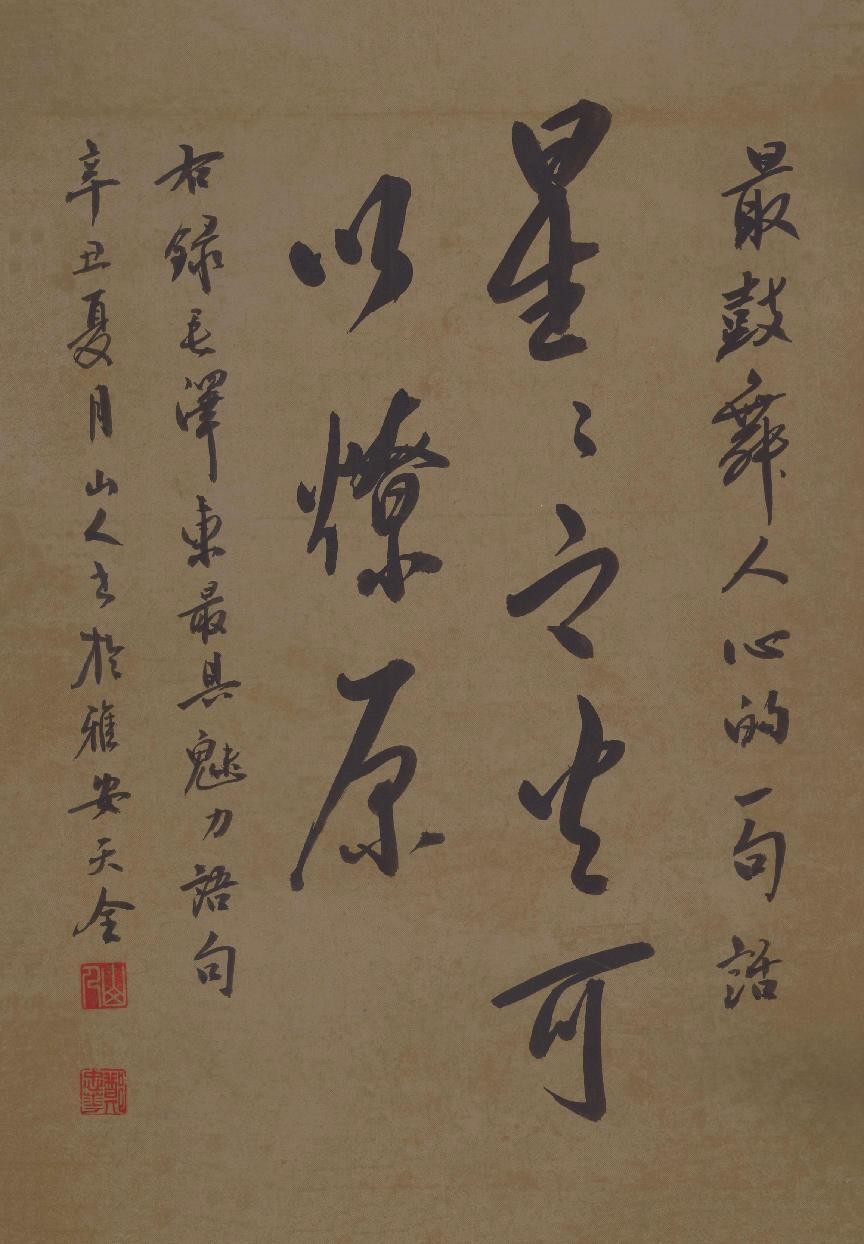 最鼓舞人心的一句话
星〻之火可
以燎原
右録毛澤東最具魅力語句
辛丑夏月山人书於雅安天全
山人